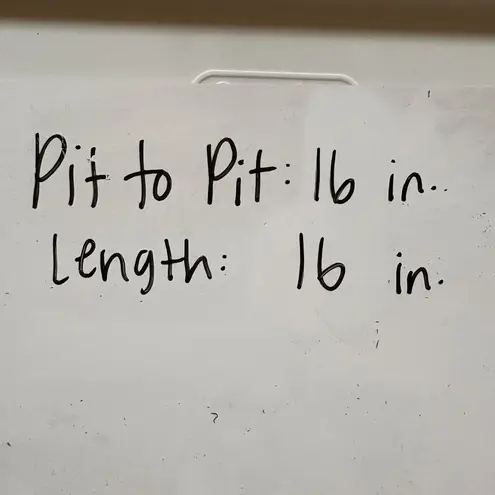 Pit to Pit: 16 in.
Length: 16 in.